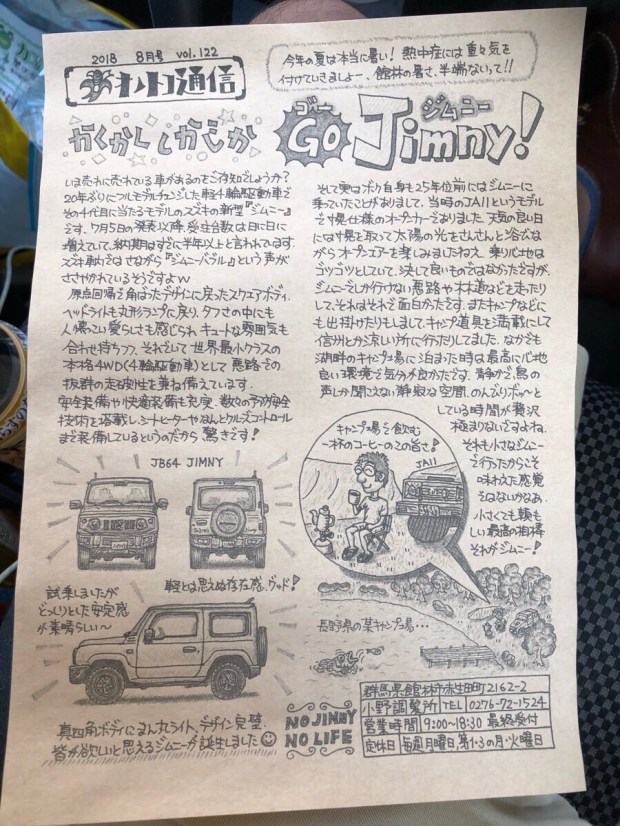 2018 8月号 vol.122
オノコ通信
今年の夏は本当に暑い！熱中症には重々気を
付けていきましょー、館林の暑さ、半端ないって!!
かくかくしかじか
ゴー ジムニー
GO Jimny!
いま売れに売れている車があるのをご存知でしょうか？
20年ぶりにフルモデルチェンジした軽4輪駆動車で
その4代目に当たるモデルのスズキの新型『ジムニー』
です。7月5日の発表以降、受注台数は日に日に
増えていて、納期はすでに半年以上と言われています。
ズキ軸ではさながら『ジムニーバブル』という声が
ささやかれているそうですよw
原点回帰で角ばったデザインに戻ったスクエアボディ、
ヘッドライトも丸形ランプに戻り、タフさの中にも
人懐こい愛らしさも感じられ、キュートな雰囲気も
合わせ持ちつつ、それでいて世界最小クラスの
本格4WD(4輪駆動車)として悪路での
抜群の走破性を兼ね備えています。
安全装備や快適装備も充実、数々の予防安全
技術を搭載し、シートヒーターやなんとクルーズコントロール
まで装備しているというのだから驚きです！
JB64 JIMNY
試乗しましたが
どっしりとした安定感
が素晴らしい〜
軽とは思えぬ存在感、グッド！
真四角ボディにまん丸ライト、デザイン完璧、
皆が欲しいと思えるジムニーが誕生しました
そして実はボク自身も25年位前にはジムニーに
乗っていたことがありまして、当時のJA11というモデル
で幌仕様のオープンカーでありました。天気の良い日
には幌を取って太陽の光をさんさんと浴びな
がらオープンエアーを楽しみましたねえ。乗り心地は
ゴツゴツとしていて、決して良いものではなかったですが、
ジムニーでしか行けない悪路や林道などを走ったり
して、それはそれで面白かったです。またキャンプなどに
も出掛けたりもしまして、キャンプ道具を満載にして
信州とか涼しい所に行ったりしてました。なかでも
湖畔のキャンプ場に泊まった時は最高に心地
良い環境で気分が良かったです。静かで、鳥の
声しか聞こえない静寂な空間、のんびりボ〜と
している時間が贅沢
極まりないですよね。
それも小さなジムニー
で行ったからこそ
味わえた感覚
ではないかなあ。
小さくても頼も
しい最高の相棒
それがジムニー！
キャンプ場で飲む
一杯のコーヒーのこの旨さ！
JA11
長野県の某キャンプ場…
NO JIMNY
NO LIFE
群馬県館林市赤生田町2162-2
小野調髪所 TEL 0276-72-1524
営業時間 9:00~18:30 最終受付
定休日 毎週月曜日、第1・3の月・火曜日